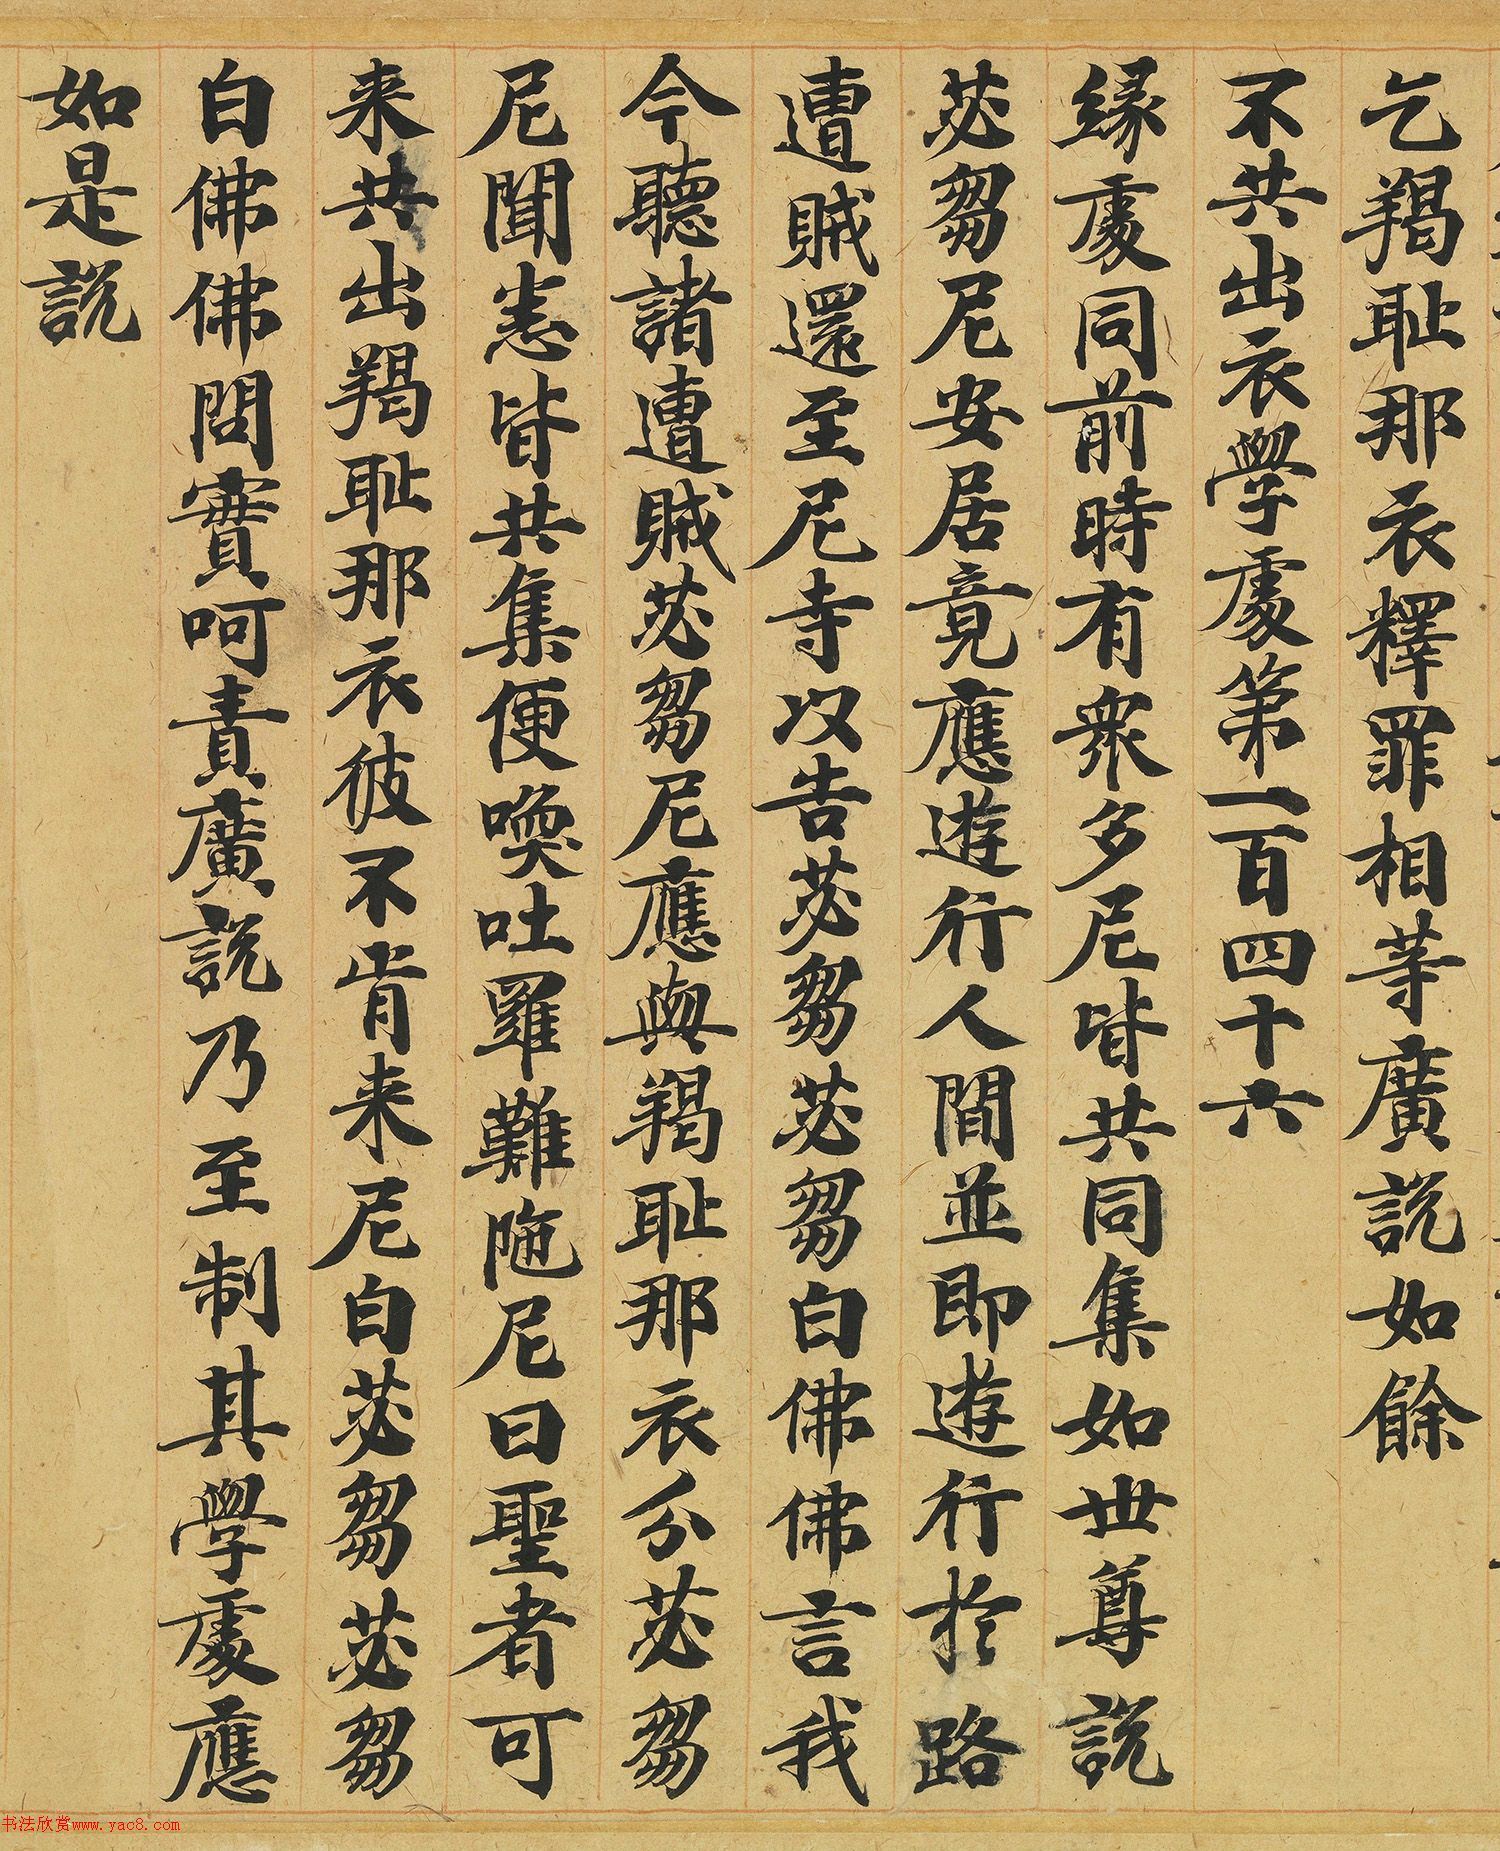 乞羯耻那衣釋罪相等廣說如餘
不共出衣學處第一百四十六
緣處同前時有衆多尼皆共同集如世尊說
苾芻尼安居竟應遊行人間並即遊行於路
遭賊還至尼寺以告苾芻苾芻白佛佛言我
今聽諸遭賊苾芻尼應與羯耻那衣分苾芻
尼聞悉皆共集便喚吐羅難陁尼曰聖者可
来共出羯耻那衣彼不肯来尼白苾芻苾芻
白佛佛問實呵責廣說乃至制其學處應
如是說
书法欣赏www.yac8.com